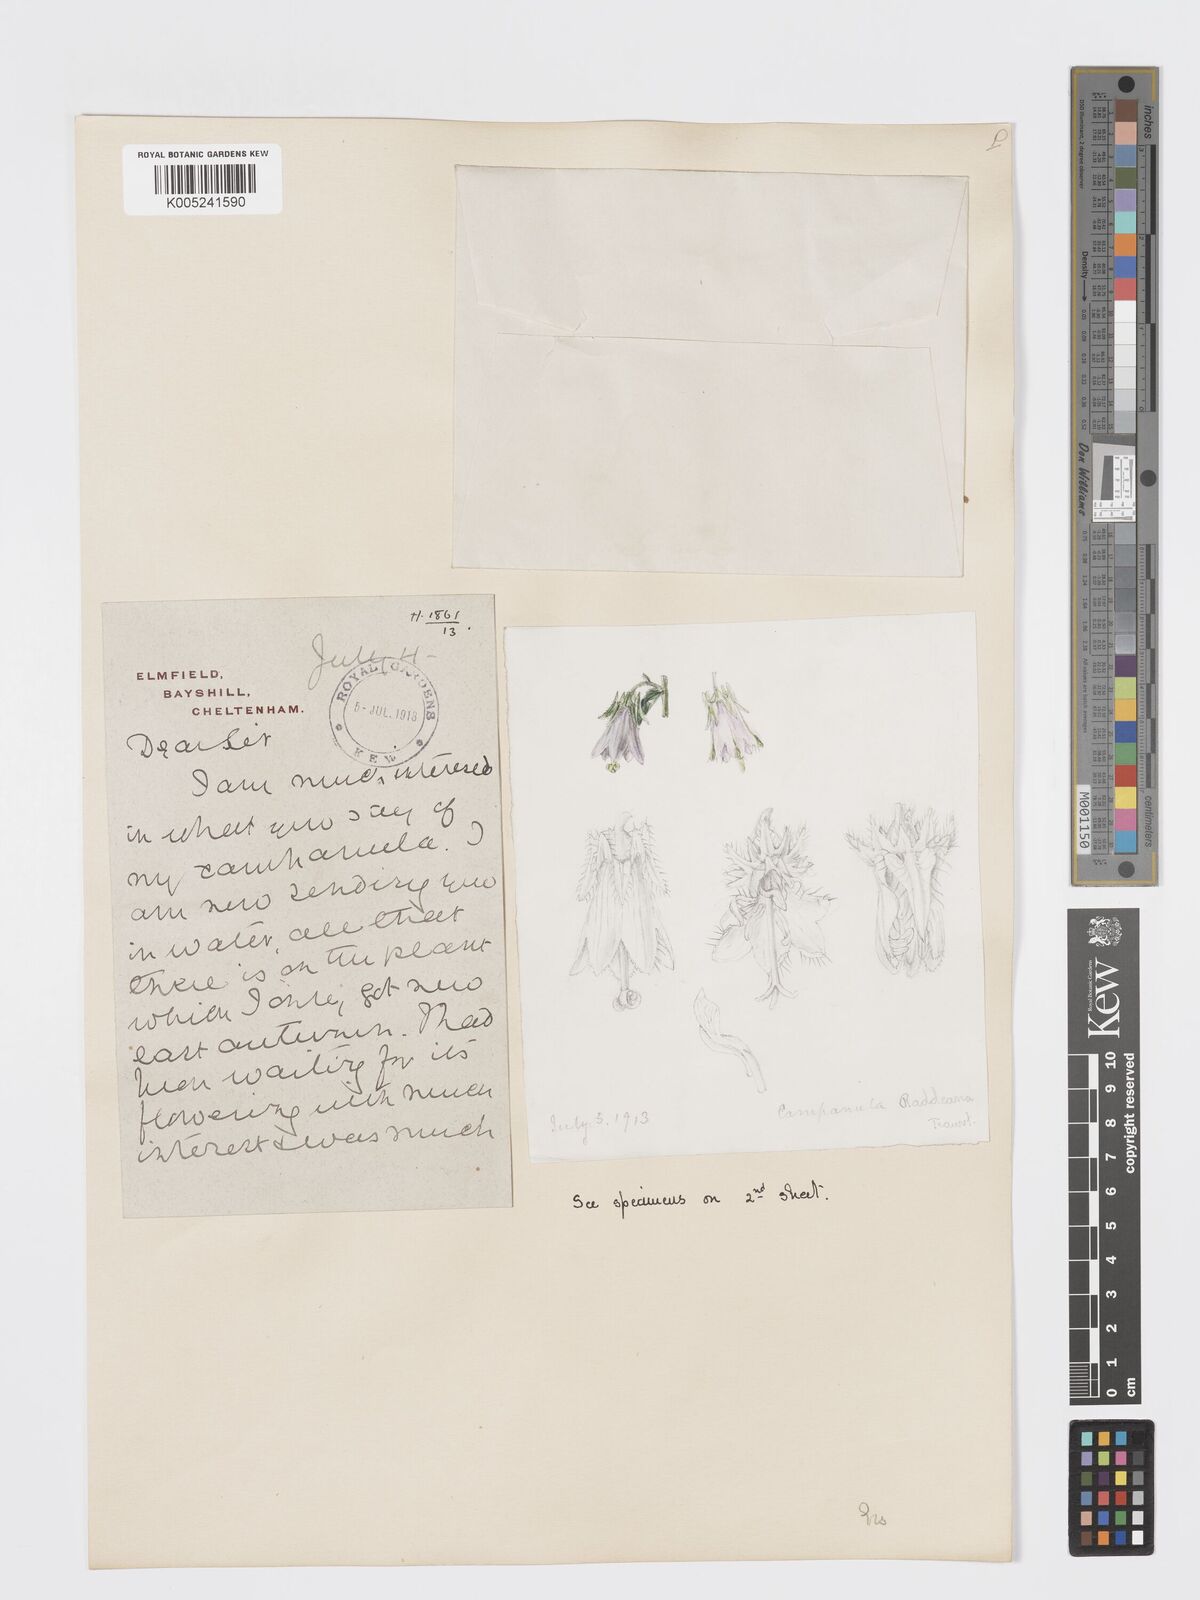 ROYAL BOTANIC GARDENS KEW
K005241590
H. 1861/13.
July 4
ELMFIELD,
BAYSHILL,
CHELTENHAM.
ROYAL GARDENS
5- JUL. 1913
KEW
Dear Sir
I am much interesed
in what you say of
my campanula. I
am now sending you
in water, all that
there is on the plant
which I only got new
last autumn. I had
been waiting for its
flowering with much
interest & was much
July 5. 1913
Campanula Raddeana
Trautv.
See specimens on 2nd sheet.
inches
centimeters
Density
Don Williams
M001150
Kew
Royal Botanic Gardens
copyright reserved
0 1 2 3 4 5 6 7 8 9 10
cm